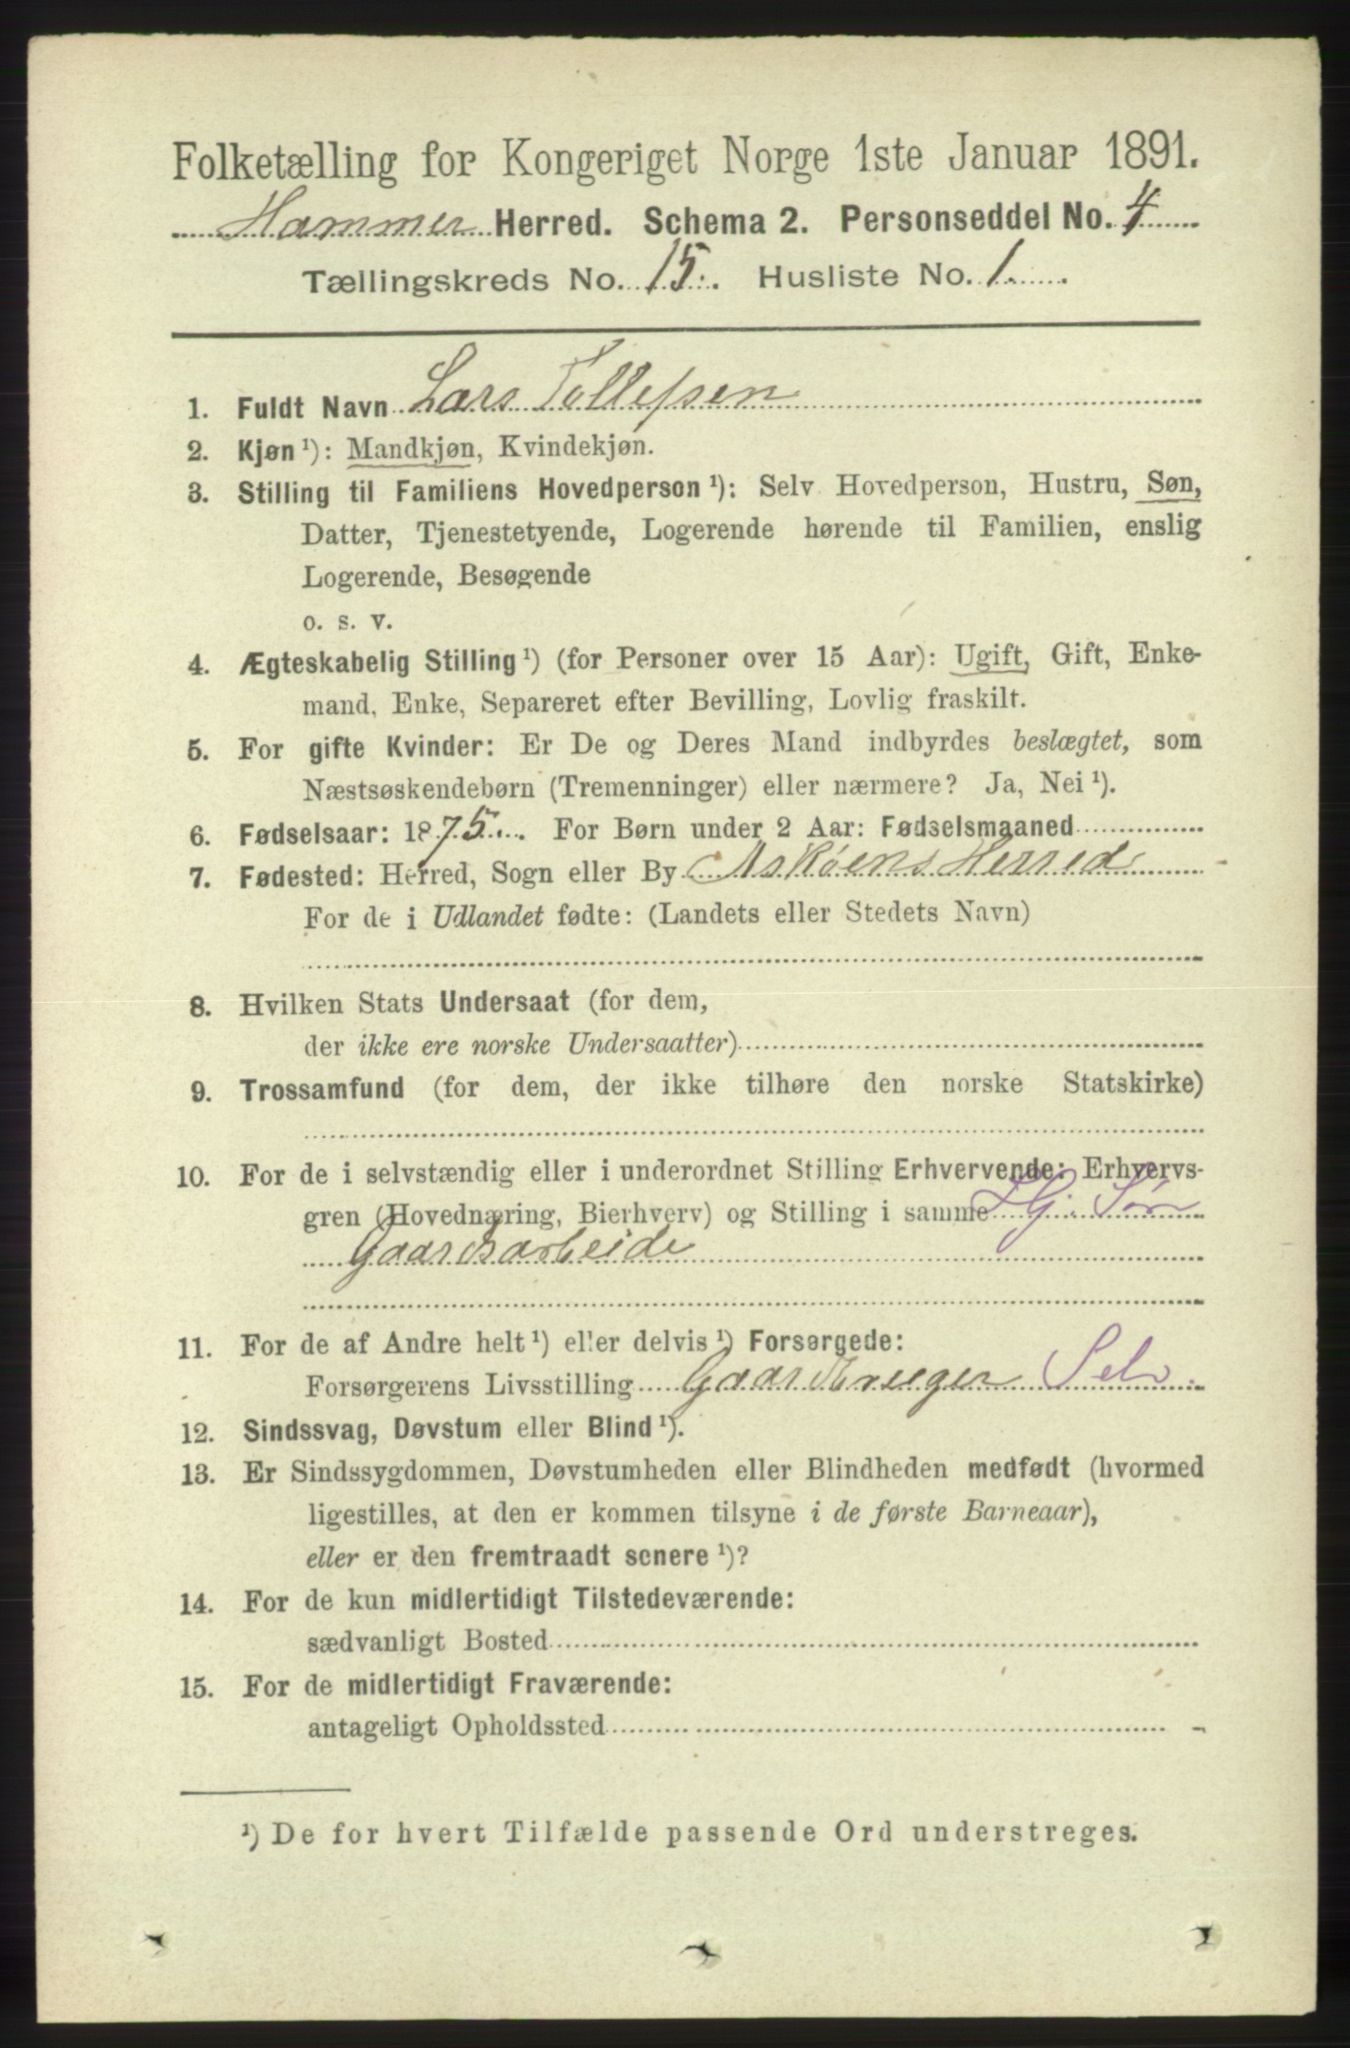 Folketælling for Kongeriget Norge 1ste Januar 1891.
Hammer Herred. Schema 2. Personseddel No. 4
Tællingskreds No. 15. Husliste No. 1.
1. Fuldt Navn Lars Tollefsen
2. Kjøn ¹): Mandkjøn, Kvindekjøn.
3. Stilling til Familiens Hovedperson ¹): Selv Hovedperson, Hustru, Søn,
Datter, Tjenestetyende, Logerende hørende til Familien, enslig
Logerende, Besøgende
o. s. v.
4. Ægteskabelig Stilling ¹) (for Personer over 15 Aar): Ugift, Gift, Enke-
mand, Enke, Separeret efter Bevilling, Lovlig fraskilt.
5. For gifte Kvinder: Er De og Deres Mand indbyrdes beslægtet, som
Næstsøskendebørn (Tremenninger) eller nærmere? Ja, Nei ¹).
6. Fødselsaar: 1875. For Børn under 2 Aar: Fødselsmaaned
7. Fødested: Herred, Sogn eller By Askøens Herred
For de i Udlandet fødte: (Landets eller Stedets Navn)
8. Hvilken Stats Undersaat (for dem,
der ikke ere norske Undersaatter)
9. Trossamfund (for dem, der ikke tilhøre den norske Statskirke)
10. For de i selvstændig eller i underordnet Stilling Erhvervende: Erhvervs-
gren (Hovednæring, Bierhverv) og Stilling i samme G. Søn
Gaardsarbeide
11. For de af Andre helt ¹) eller delvis ¹) Forsørgede:
Forsørgerens Livsstilling Gaardbruger Selv.
12. Sindssvag, Døvstum eller Blind ¹).
13. Er Sindssygdommen, Døvstumheden eller Blindheden medfødt (hvormed
ligestilles, at den er kommen tilsyne i de første Barneaar),
eller er den fremtraadt senere ¹)?
14. For de kun midlertidigt Tilstedeværende:
sædvanligt Bosted
15. For de midlertidigt Fraværende:
antageligt Opholdssted
¹) De for hvert Tilfælde passende Ord understreges.